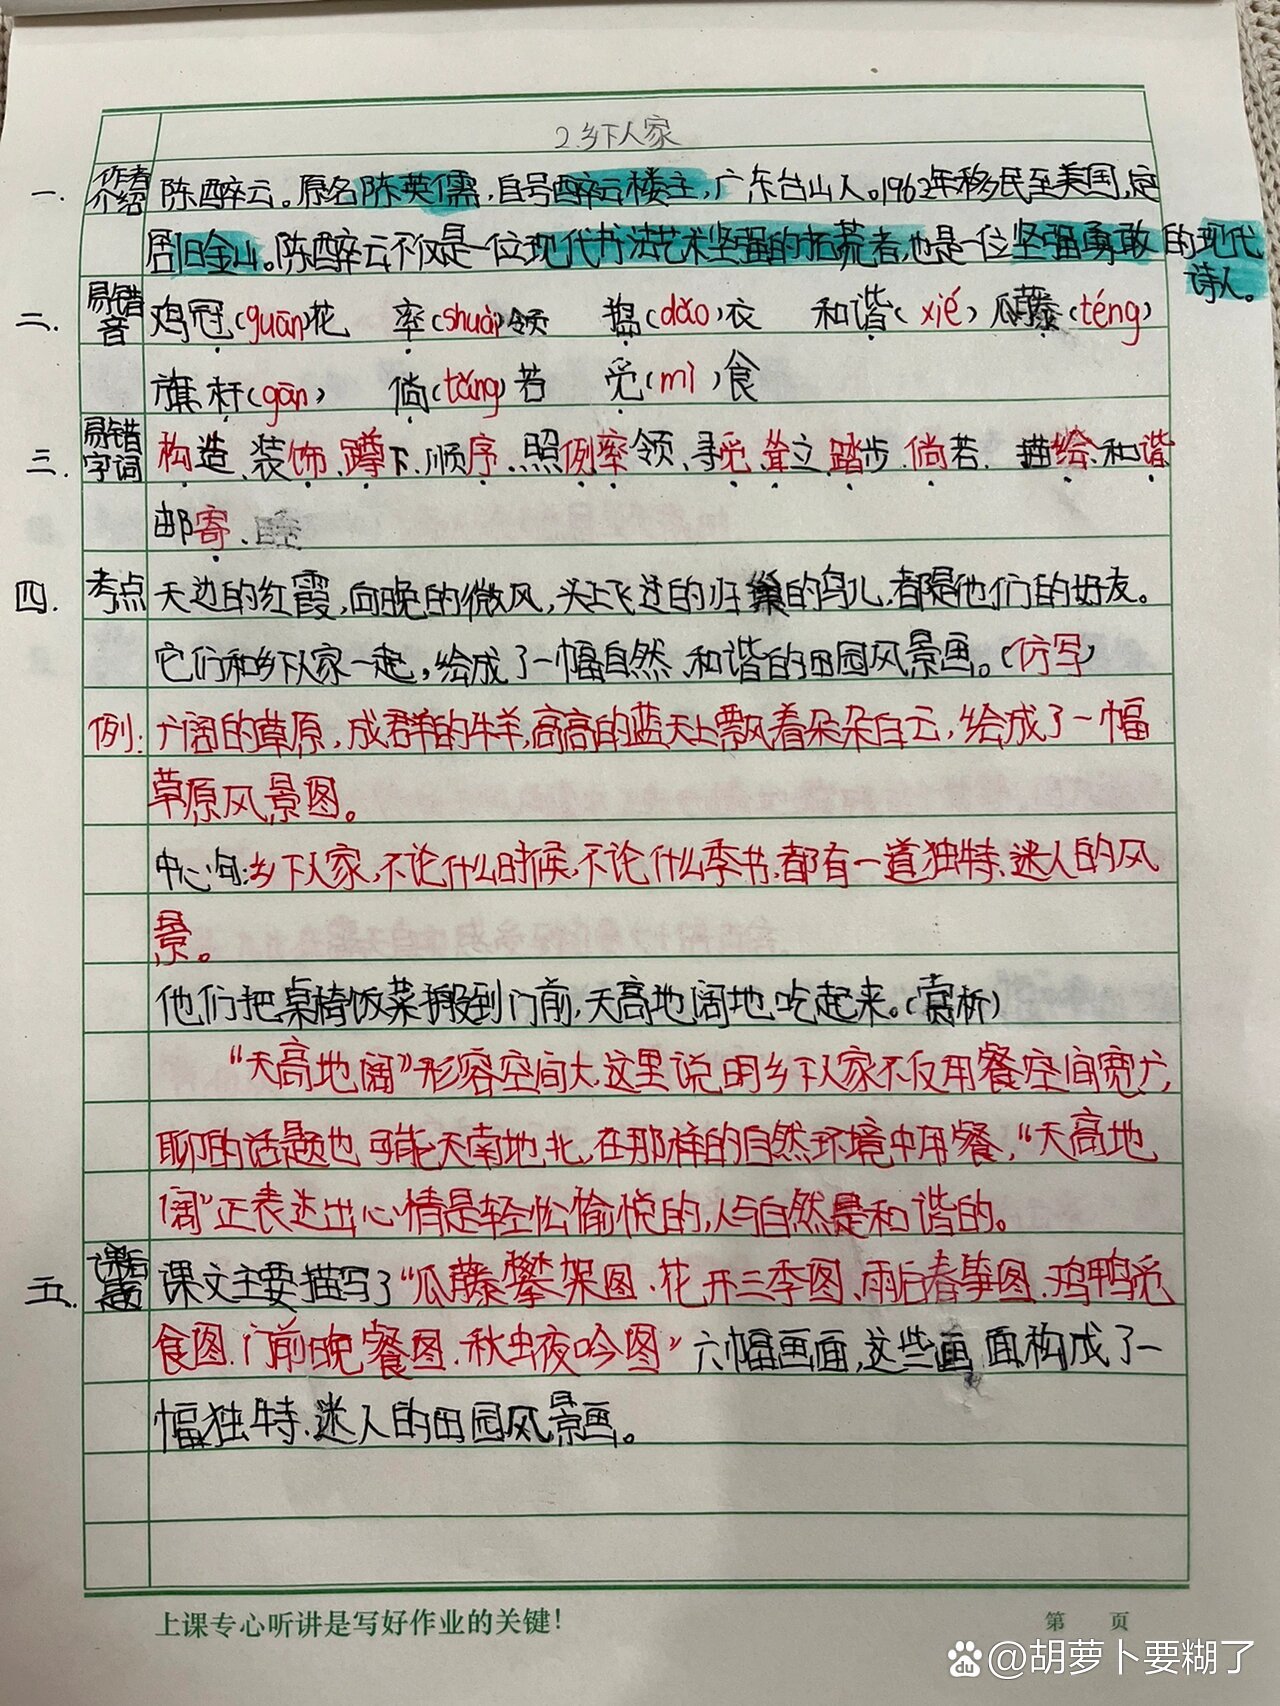 2.乡下人家
一. 作者介绍 陈醉云。原名陈英儒,自号醉云楼主,广东台山人。1962年移民至美国,定
居旧金山。陈醉云不仅是一位现代书法艺术坚强的拓荒者,也是一位坚强勇敢的现代
诗人。
二. 易错音 鸡冠(guān)花 率(shuài)领 捣(dǎo)衣 和谐(xié) 瓜藤(téng)
旗杆(gān) 倘(tǎng)若 觅(mì)食
三. 易错字词 构造、装饰、蹲下、顺序、照例、率领、寻觅、耸立、踏步、倘若、描绘、和谐
邮寄、
四. 考点 天边的红霞,向晚的微风,头上飞过的归巢的鸟儿,都是他们的好友。
它们和乡下人家一起,绘成了一幅自然、和谐的田园风景画。(仿写)
例: 广阔的草原,成群的牛羊,高高的蓝天上飘着朵朵白云,绘成了一幅
草原风景图。
中心句:乡下人家,不论什么时候,不论什么季书,都有一道独特、迷人的风
景。
他们把桌椅饭菜搬到门前,天高地阔地吃起来。(赏析)
“天高地阔”形容空间大,这里说明乡下人家不仅用餐空间宽广,
聊的话题也可能天南地北,在那样的自然环境中用餐,“天高地
阔”正表达出心情是轻松愉悦的,人与自然是和谐的。
五. 课后题 课文主要描写了“瓜藤攀架图、花开三季图、雨后春笋图、鸡鸭觅
食图、门前晚餐图、秋虫夜吟图”六幅画面,这些画面构成了一
幅独特、迷人的田园风景画。
上课专心听讲是写好作业的关键!
第 页
Bai du @胡萝卜要糊了